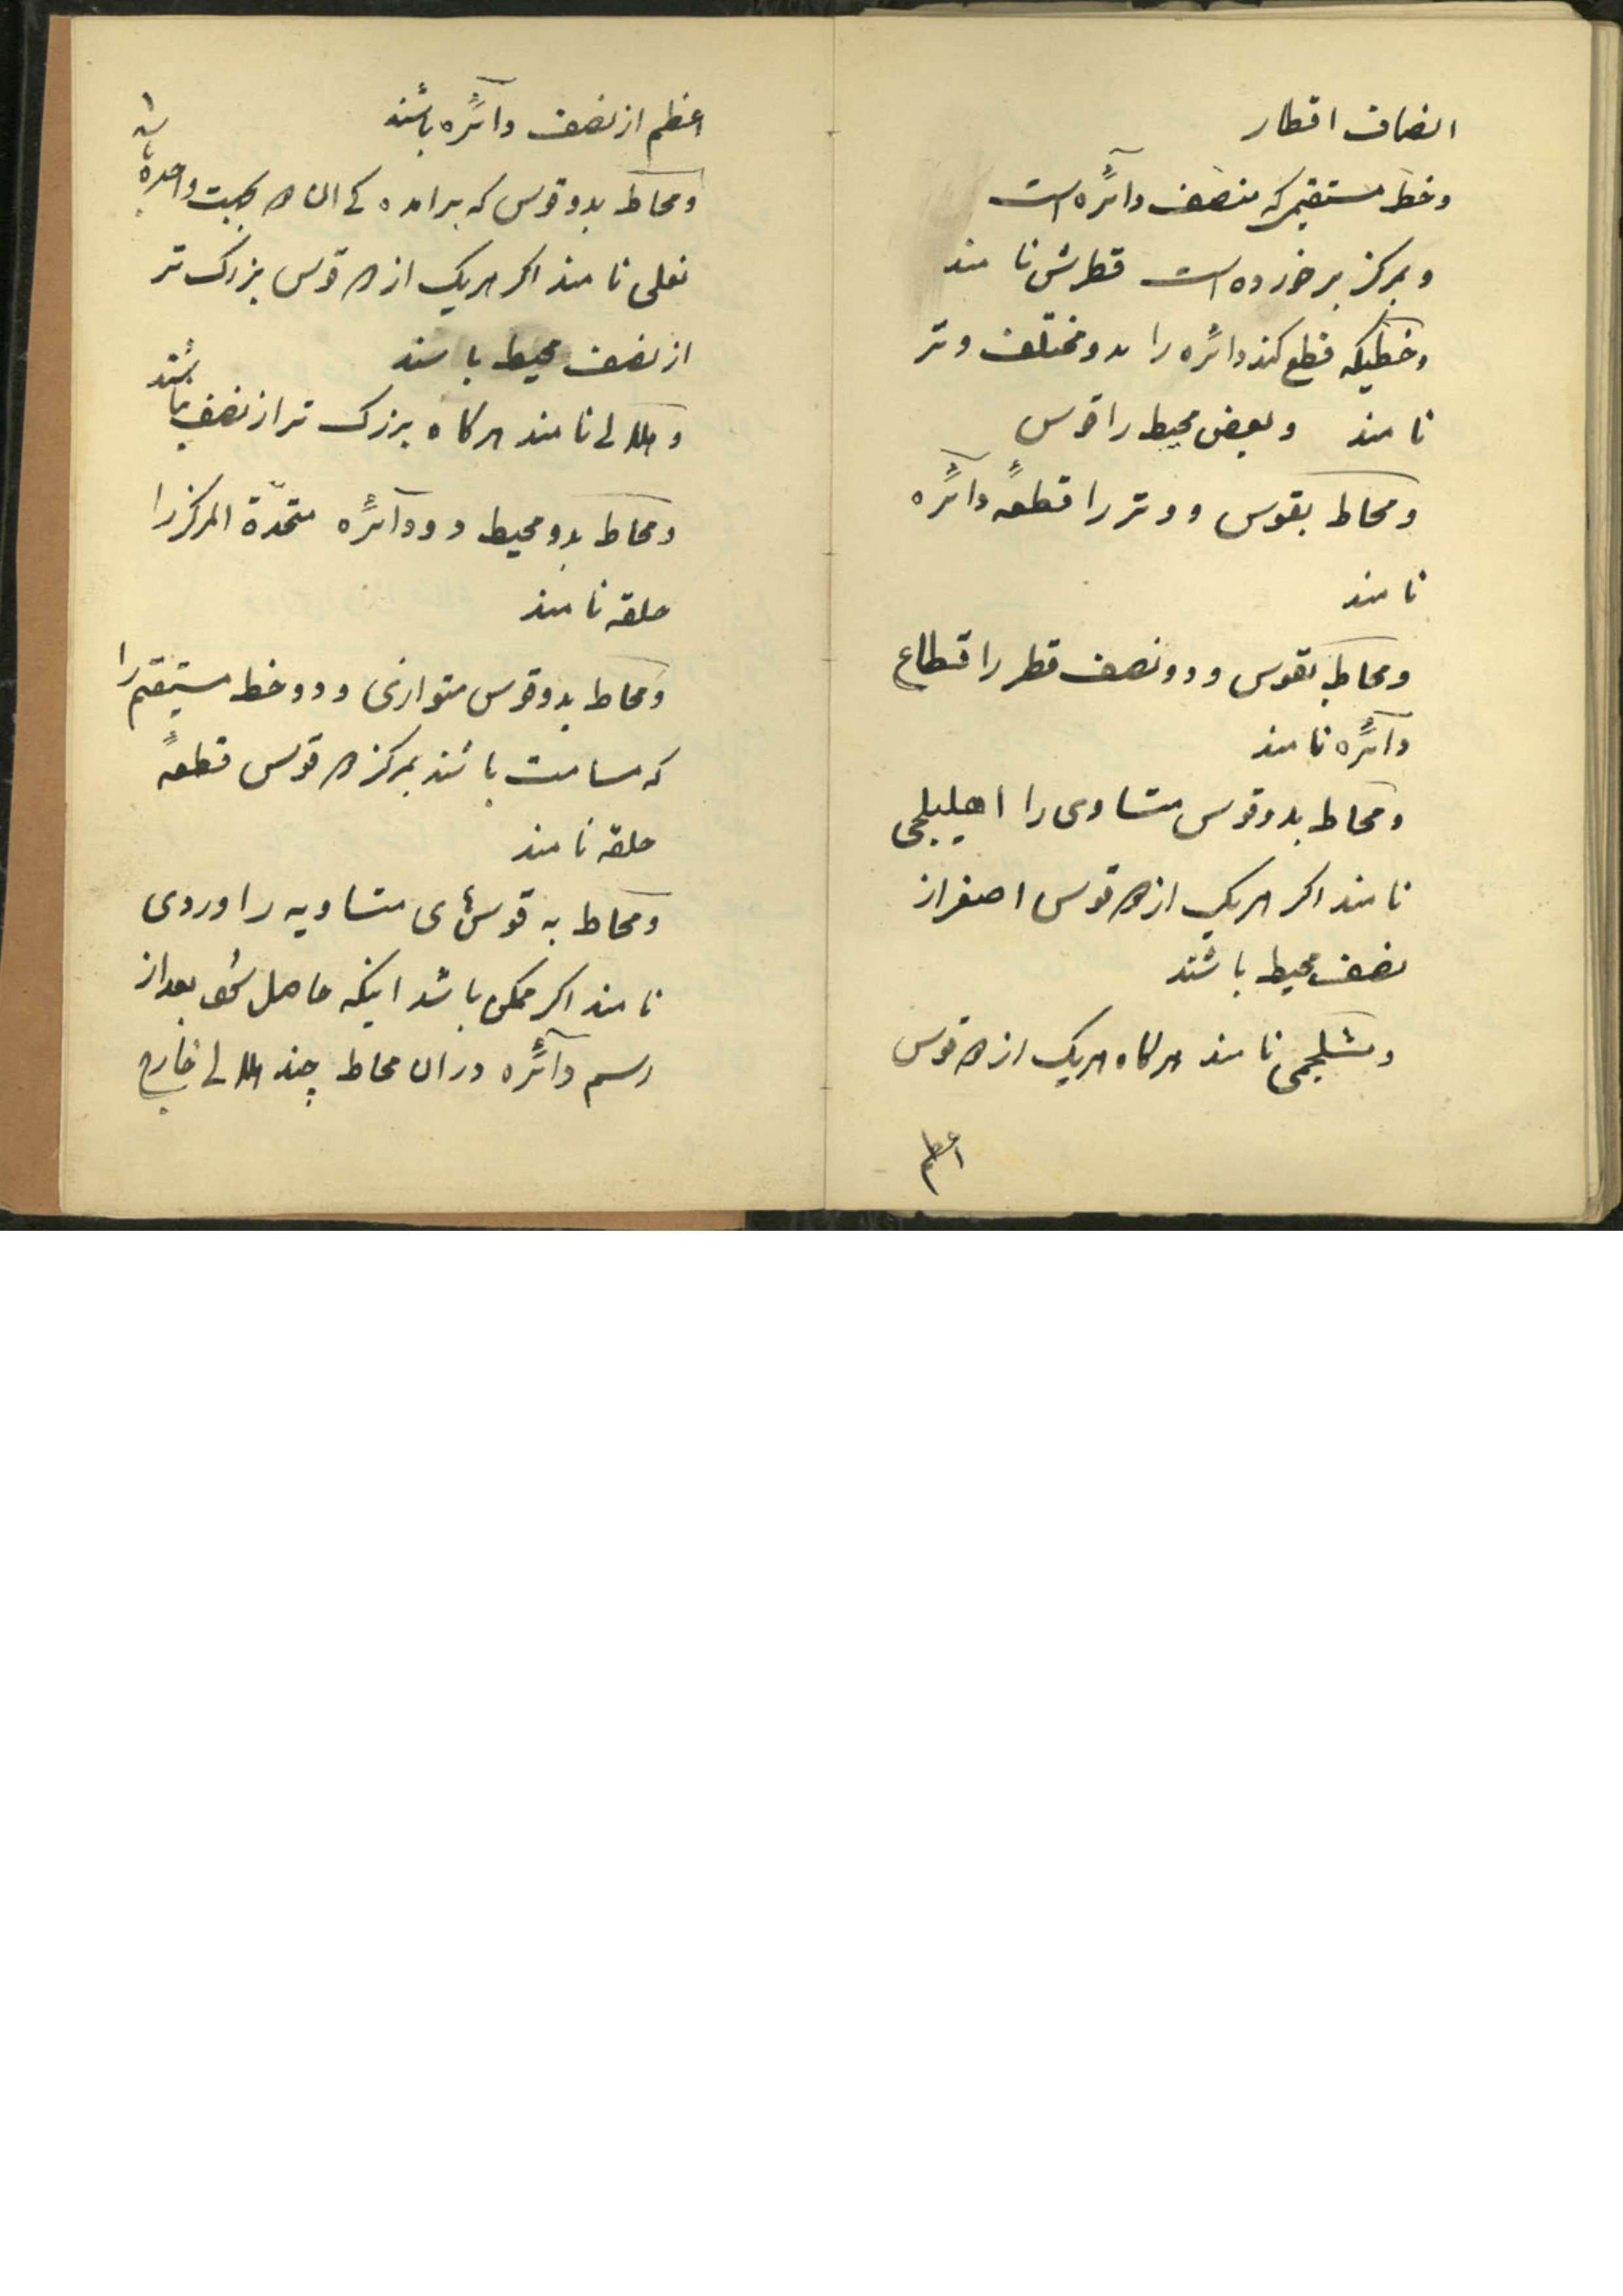 انصاف اقطار
وخط مستقیم که منصف دآئره است
و بمرکز برخورده است قطرش نامند
وخطیکه قطع کند دائره را بدو مختلف وتر
نامند وبعض محیط را قوس
ومحاط بقوس و وتر را قطعهٔ دآئره
نامند
ومحاط بقوس ودو نصف قطر را قطاع
دآئره نامند
ومحاط بدو قوس متساوی را اهلیلجی
نامند اکر هریک از دو قوس اصغر از
نصف محیط باشند
وشلجمی نامند هرکاه هریک از دو قوس
اعظم
اعظم از نصف دآئره باشند
ومحاط بدو قوس که برامدہ کی ان دو بجهت واحده باشد
نعلی نامند اکر هریک از دو قوس بزرک تر
از نصف محیط باشند
و هلالی نامند هرکاه بزرک تر از نصف نباشند
ومحاط بدو محیط دو دآئره متحدّة المرکز را
حلقه نامند
ومحاط بدو قوس متوازی ودو خط مستقیم را
که مسامت باشند بمرکز دو قوس قطعهٔ
حلقه نامند
ومحاط به قوسهای متساویه را وردی
نامند اکر ممکن باشد اینکه حاصل شود بعد از
رسم دآئره دران محاط چند هلالی خارج